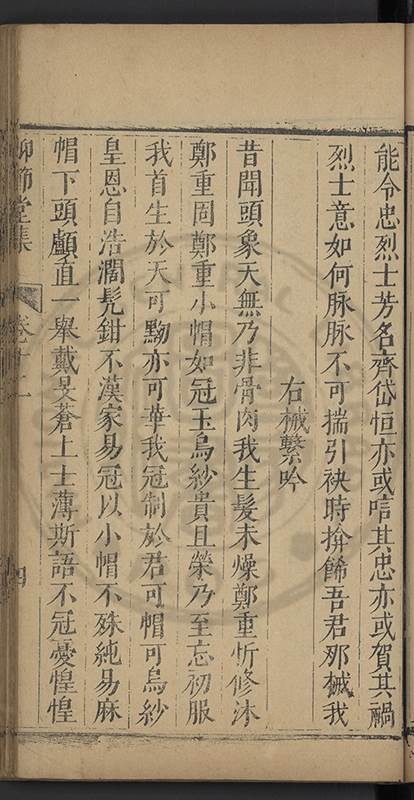 能令忠烈士芳名齊岱恒亦或唁其忠亦或賀其禍
烈士意如何脉脉不可揣引袂時揜餙吾君那械我
右械繫吟
昔聞頭象天無乃非骨肉我生髮未燥鄭重忻修沐
鄭重固鄭重小帽如冠玉烏紗貴且榮乃至忘初服
我首生於天可黝亦可華我冠制於君可帽可烏紗
皇恩自浩濶髠鉗不漢家易冠以小帽不殊純易麻
帽下頭顱直一舉戴旻蒼上士薄斯語不冠憂惶惶
節堂集
卷十二
四